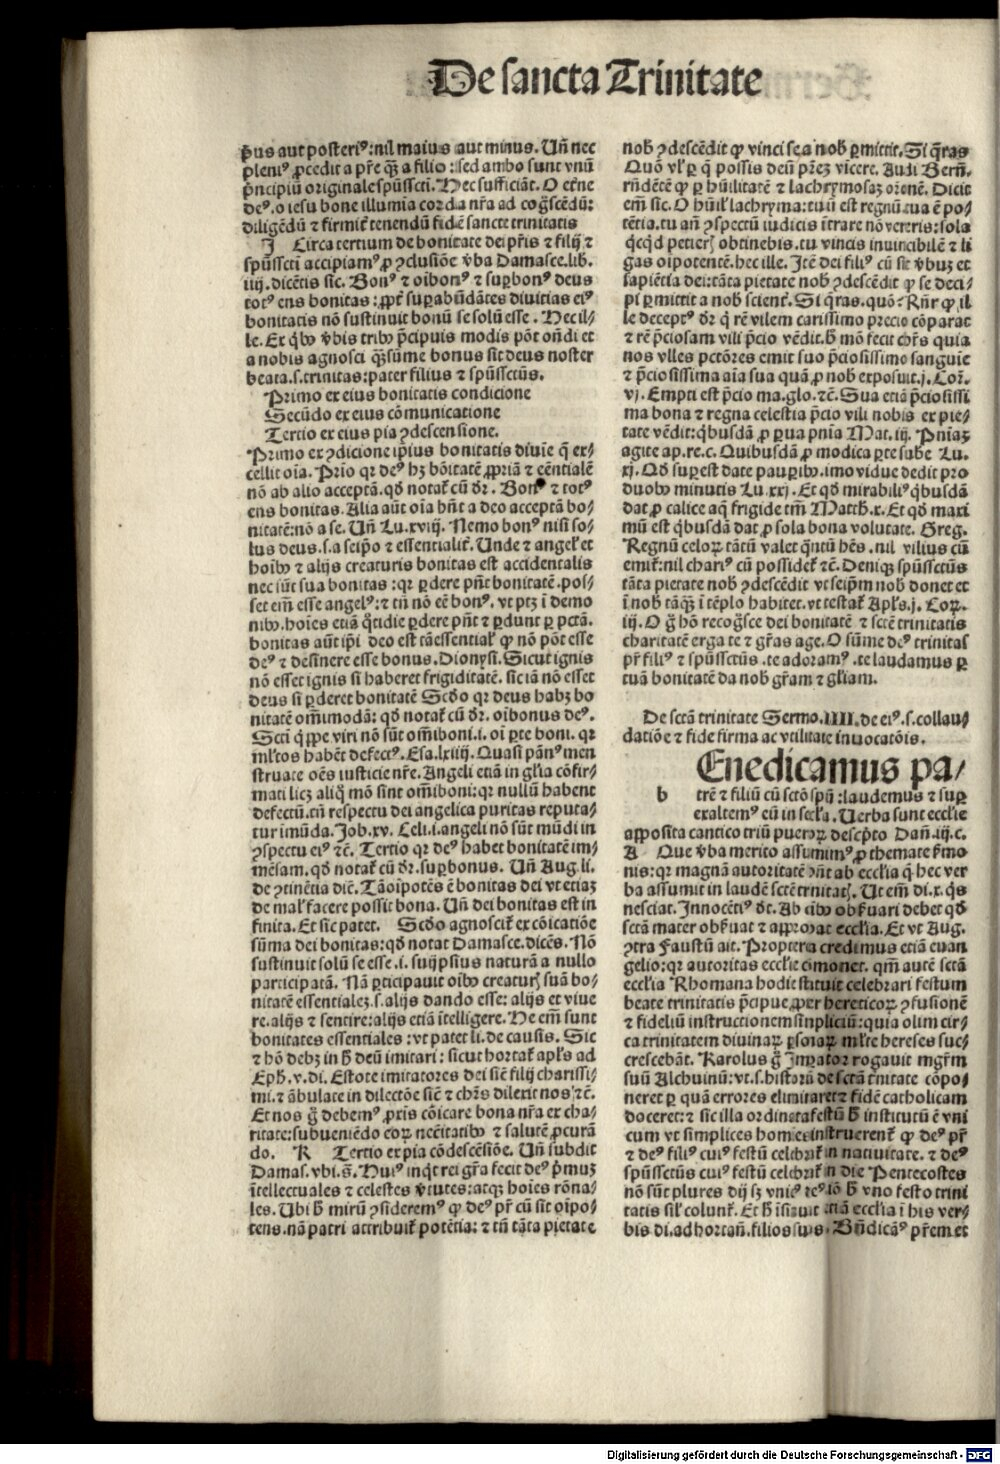 De sancta Trinitate
p̄us aut posteriꝰ: nil maius aut minus. Vn̄ nec
pleniꝰ ꝓcedit a p̄re q̄ꝫ a filio: sed ambo sunt vnū
p̄ncipiū originale spūsscti. Hec sufficiāt. O et̄ne
deꝰ. o iesu bone illumia corda nr̄a ad cog̊scēdū:
diligēdū ⁊ firmit̄ tenendū fidē sancte trinitatis
J Circa tertium de bonitate dei pr̄is ⁊ filij ⁊
spūsscti accipiamꝰ ꝓ ꝯclusiōe v̄ba Damasce. lib.
iiij. dicētis sic. Bonꝰ ⁊ oībonꝰ ⁊ suꝑbonꝰ deus
totꝰ ens bonitas: ꝓpt̄ suꝑabūdātes diuitias eiꝰ
bonitatis nō sustinuit bonū se solū esse. Hec il⸗
le. Ex q̇bꝰ v̄bis tribꝰ p̄cipuis modis pōt on̄di et
a nobis agnosci q̄ꝫ sūme bonus sit deus noster
beata .s. trinitas: pater filius ⁊ spūssctūs.
Primo ex eius bonitatis condicione
Secūdo ex eius cōmunicatione
Tertio ex eius pia ꝯdescensione.
Primo ex ꝯdicione ip̄ius bonitatis diuīe q̄ ex⸗
cellit oīa. Prīo qr deꝰ hꝫ bōitatē ꝓpriā ⁊ eēntialē
nō ab alio acceptā. qd̄ notat̄ cū dr̄. Bonꝰ ⁊ totꝰ
ens bonitas. Alia aūt oīa hn̄t a deo acceptā bo⸗
nitatē: nō a se. Vn̄ Lu. xviij. Nemo bonꝰ nisi so⸗
lus deus .s. a seip̄o ⁊ essentialit̄. Unde ⁊ angel̄ et
hoībꝰ ⁊ alijs creaturis bonitas est accidentalis
nec sūt sua bonitas: qr ꝑdere pn̄t bonitatē. pos⸗
set em̄ esse angelꝰ: ⁊ tn̄ nō eē bonꝰ. vt ptꝫ ī demo
nibꝰ. hoīes etiā q̄tidie ꝑdere pn̄t ⁊ ꝑdunt ꝑ pctā.
bonitas aūt ip̄i deo est tā essential̄ ꝙ nō pōt esse
deꝰ ⁊ desinere esse bonus. Dionysi. Sicut ignis
nō esset ignis si haberet frigiditatē. sic iā nō esset
deus si ꝑderet bonitatē Scd̄o qr deus habꝫ bo
nitatē om̄imodā: qd̄ notat̄ cū dr̄. oībonus deꝰ.
Scti q̄ppe viri nō sūt om̄iboni .i. oi ꝑte boni. qr
ml̄tos habēt defectꝰ. Esa. lxiiij. Quasi pānꝰ men
struate oēs iusticie nr̄e. Angeli etiā in gl̄ia cōfir⸗
mati licꝫ aliq̇ mō sint om̄iboni: qr nullū habent
defectū. tn̄ respectu dei angelica puritas reputa⸗
tur imūda. Job. xv. Celi .i. angeli nō sūt mūdi in
ꝯspectu eiꝰ ⁊c̄. Tertio qr deꝰ habet bonitatē im⸗
mēsam. qd̄ notat̄ cū dr̄. suꝑbonus. Vn̄ Aug. li.
de ꝯtinētia dic̄. Tā oīpotēs ē bonitas dei vt etiaꝫ
de mal̄ facere possit bona. Vn̄ dei bonitas est in
finita. Et sic patet. Scd̄o agnoscit̄ ex cōicatiōe
sūma dei bonitas: qd̄ notat Damasce. dicēs. Nō
sustinuit solū se esse .i. suijpsius naturā a nullo
participatā. Nā ꝑticipauit oībꝰ creatur̄ suā bo⸗
nitatē essentialeꝫ .s. alijs dando esse: alijs et viue
re. alijs ⁊ sentire: alijs etiā ītelligere. He em̄ sunt
bonitates essentiales: vt patet li. de causis. Sic
⁊ hō debꝫ in h̄ deū imitari: sicut hortat̄ apl̄s ad
Eph. v. di. Estote imitatores dei sic̄ filij charissi⸗
mi. ⁊ ābulate in dilectōe sic̄ ⁊ chr̄s dilexit nos ⁊c̄.
Et nos g̊ debemꝰ ꝓxis cōicare bona nr̄a ex cha⸗
ritate: subueniēdo eoꝝ necc̄itatibꝰ ⁊ salutē ꝓcurā
do. K Tertio ex pia cōdescēsiōe. Vn̄ subdit
Damas. vbi .s̄. Huiꝰ inq̄t rei gr̄a fecit deꝰ p̄muꝫ
ītellectuales ⁊ celestes v̄tutes: atqꝫ hoīes rōna⸗
les. Ubi h̄ mirū ꝯsideremꝰ ꝙ deꝰ pr̄ cū sit oīpo⸗
tens. nā patri attribuit̄ potētia: ⁊ tn̄ tāta pietate
nob̄ ꝯdescēdit ꝙ vinci se a nob̄ ꝑmittit. Si q̄ras
Quō vl̄ ꝑ q̄ possis deū prēꝫ vicere. Audi Bern̄.
rn̄dētē ꝙ ꝑ hūilitatē ⁊ lachrymosaꝫ or̄onē. Dicit
em̄ sic. O hūil̄ lachryma: tuū est regnū tua ē po⸗
tētia. tu an̄ ꝯspectū iudicis ītrare nō vereris: sola
q̇cq̇d petier̄ obtinebis. tu vincis inuincibilē ⁊ li
gas oīpotentē. hec ille. Itē dei filiꝰ cū sit v̄buꝫ et
sapiētia dei: tāta pietate nob̄ ꝯdescēdit ꝙ se deci⸗
pi ꝑmittit a nob̄ scient̄. Si q̄ras. quō? Rn̄r ꝙ il
le deceptꝰ dr̄ q̇ rē vilem carissimo precio cōparat
⁊ rē p̄ciosam vili p̄cio vēdit. h̄ mō fecit chr̄s quia
nos viles pctōres emit suo p̄ciosissimo sanguīe
⁊ p̄ciosissima aīa sua quā ꝓ nob̄ exposuit. j. Cor̄.
vj. Empti est p̄cio ma. glo. ⁊c̄. Sua etiā p̄ciosissi
ma bona ⁊ regna celestia p̄cio vili nobis ex pie⸗
tate vēdit: q̇busdā ꝓ ꝑua pn̄ia Mat. iij. Pn̄iaꝫ
agite ap. re. c. Quibusdā ꝓ modica ꝑte sube Lu.
xj. Qd̄ suꝑest date pauꝑibꝰ. imo vidue dedit pro
duobꝰ minutis Lu. xxj. Et qd̄ mirabiliꝰ q̇busdā
dat ꝓ calice aq̄ frigide tm̄ Matth̄. x. Et qd̄ maxi
mū est q̇busdā dat ꝓ sola bona volūtate. Greg.
Regnū celoꝝ tātū valet q̄ntū hēs. nil vilius cū
emit̄: nil chariꝰ cū possidet̄ ⁊c̄. Deniqꝫ spūssctūs
tāta pietate nob̄ ꝯdescēdit vt seip̄m nob̄ donet et
ī nob̄ tāq̄ꝫ ī tēplo habitet. vt testat̄ Apl̄s. j. Coꝝ.
iij. O g̊ hō recog̊sce dei bonitatē ⁊ sctē trinitatis
charitatē erga te ⁊ gr̄as age. O sūme deꝰ trinitas
pr̄ filiꝰ ⁊ spūssctūs. te adoramꝰ. te laudamus ꝑ
tuā bonitatē da nob̄ gr̄am ⁊ gl̄iam.
De sctā trinitate Sermo. IIII. de eiꝰ .s. collau⸗
datiōe ⁊ fide firma ac vtilitate inuocatōis.
Enedicamus pa⸗
b trē ⁊ filiū cū sctō spū: laudemus ⁊ suꝑ
exaltemꝰ eū in secl̄a. Verba sunt ecclīe
apposita cantico triū pueroꝝ descp̄to Dan̄. iij. c.
A Que v̄ba merito assumimꝰ ꝓ themate s̄mo
nis: qr magnā autoritatē hn̄t ab eccl̄ia q̄ hec ver
ba assumit in laudē sctē trinitat̄. Ut em̄ di. x. q̇s
nesciat. Innocētiꝰ dt. Ab oībꝰ obs̄uari debet qd̄
sctā mater obs̄uat ⁊ approbat eccl̄ia. Et vt Aug.
ꝯtra Faustū ait. Propterea credimus etiā euan
gelio: qr autoritas eccl̄ie cōmonet. qm̄ autē sctā
eccl̄ia Rhomana hodie stituit celebrari festum
beate trinitatis p̄cipue ꝓpter hereticoꝝ ꝯfusionē
⁊ fideliū instructionem simpliciū: quia olim cir⸗
ca trinitatem diuinaꝝ ꝑsonaꝝ ml̄te hereses suc⸗
crescebāt. Karolus g̊ Imꝑator rogauit mgr̄m
suū Alchuinū: vt .s. historiā de sctā t̄nitate cōpo⸗
neret ꝑ quā errores eliminaret ⁊ fidē catholicam
doceret: ⁊ sic illa ordinata festū h̄ institutū ē vni
cum vt simplices homines instruerent̄ ꝙ deꝰ pr̄
⁊ deꝰ filiꝰ cuiꝰ festū celebrat̄ in natiuitate. ⁊ deꝰ
spūssctūs cuiꝰ festū celebrat̄ in die Pentecostes
nō sūt plures dij sꝫ vnicꝰ ⁊ iō h̄ vno festo trini
tatis sil̄ colunt̄. Et h̄ īsinuit etiā eccl̄ia ī his ver⸗
bis di. ad hortan̄. filios suos. Bn̄dicaꝰ pr̄em et
Digitalisierung gefördert durch die Deutsche Forschungsgemeinschaft - DFG